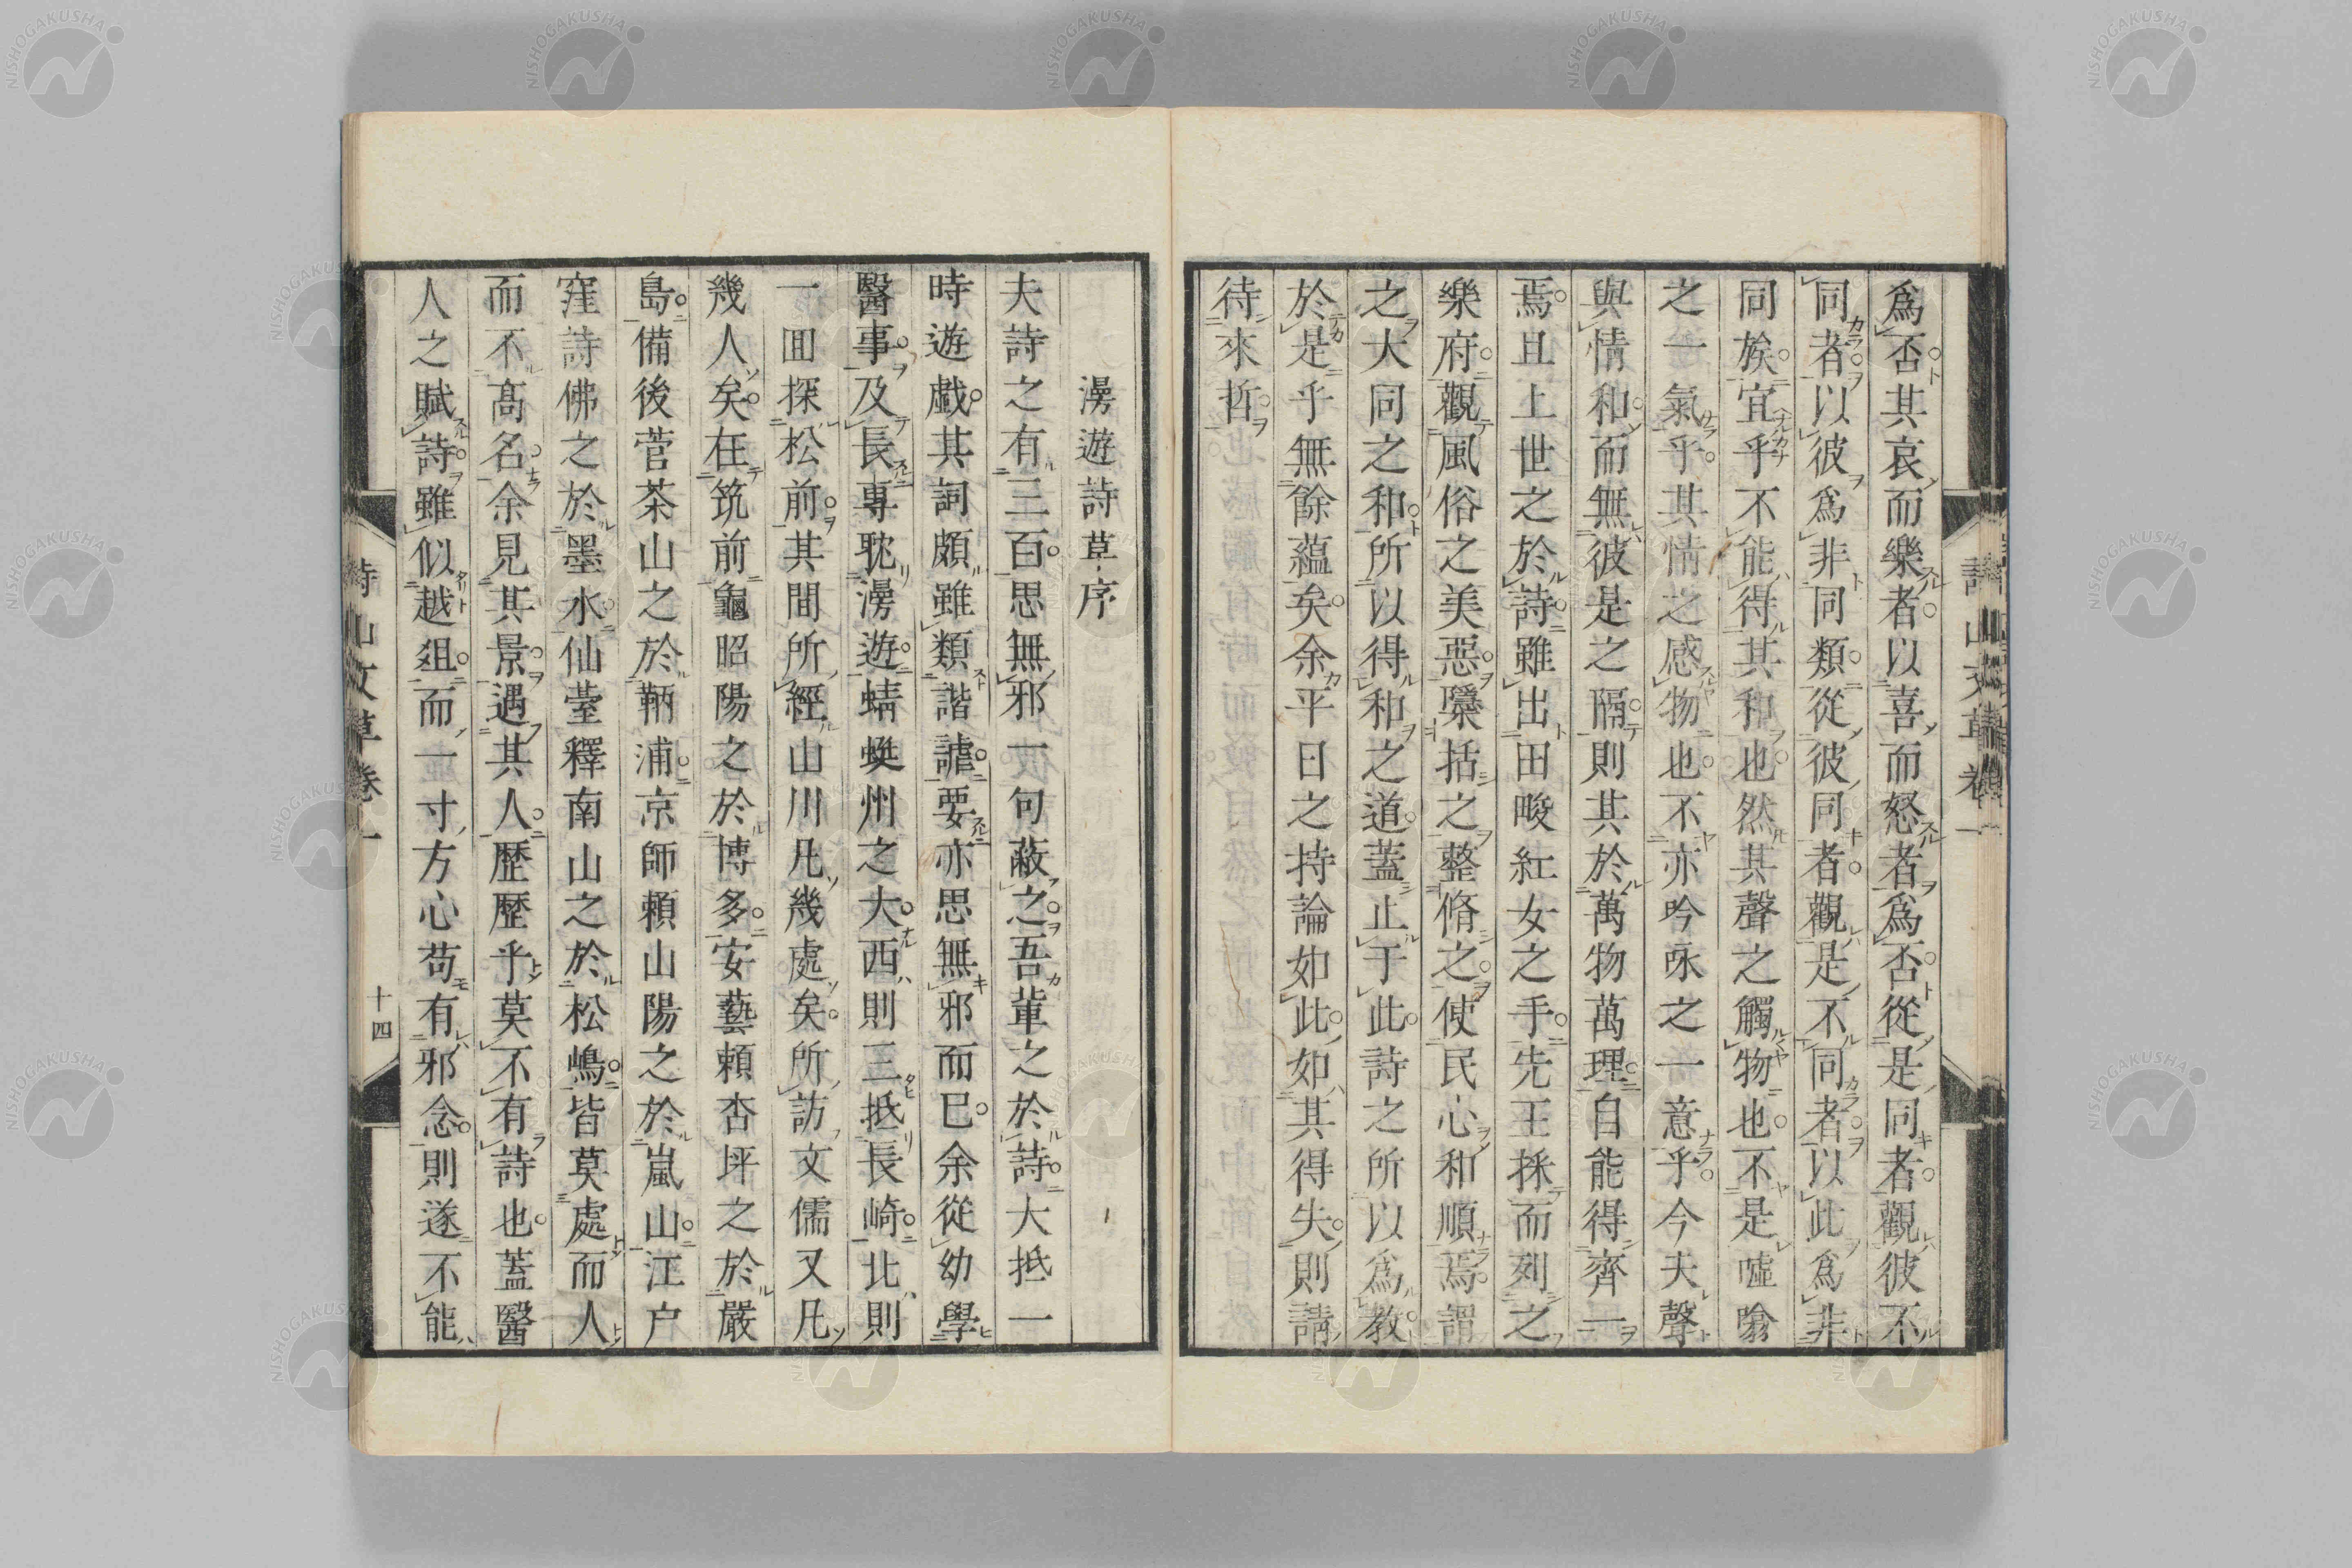 爲否其哀而樂者以喜而怒者爲否從是同者觀彼不
同者以彼爲非同類從彼同者觀是不同者以此爲非
同族宜乎不能得其和也然其聲之觸物也不是噓喻
之一氣乎其情之感物也不亦吟咏之一意乎今夫聲
與情和而無彼是之隔則其於萬物萬理自能得齊一
焉且上世之於詩雖出田畯紅女之手先王採而列之
樂府觀風俗之美惡櫽括之整脩之使民心和順焉謂
之大同之和所以得和之道蓋止于此詩之所以爲教
於是乎無餘蘊矣余平日之持論如此如其得失則請
待來哲
漫遊詩草序
夫詩之有三百思無邪一句蔽之吾輩之於詩大抵一
時遊戲其詞頗雖類諧謔要亦思無邪而已余從幼學
醫事及長專耽漫遊蜻蜓州之大西則三抵長崎北則
一回探松前其間所經山川凡幾處矣所訪文儒又凡
幾人矣在筑前龜昭陽之於博多安藝賴杏坪之於嚴
島備後菅茶山之於鞆浦京師賴山陽之於嵐山江戸
窪詩佛之於墨水仙臺釋南山之於松嶋皆莫處而人
而不高名余見其景遇其人歷歷乎莫不有詩也蓋醫
人之賦詩雖似越俎而一寸方心苟有邪念則遂不能
詩山文草卷一
十四
NISHOGAKUSHA